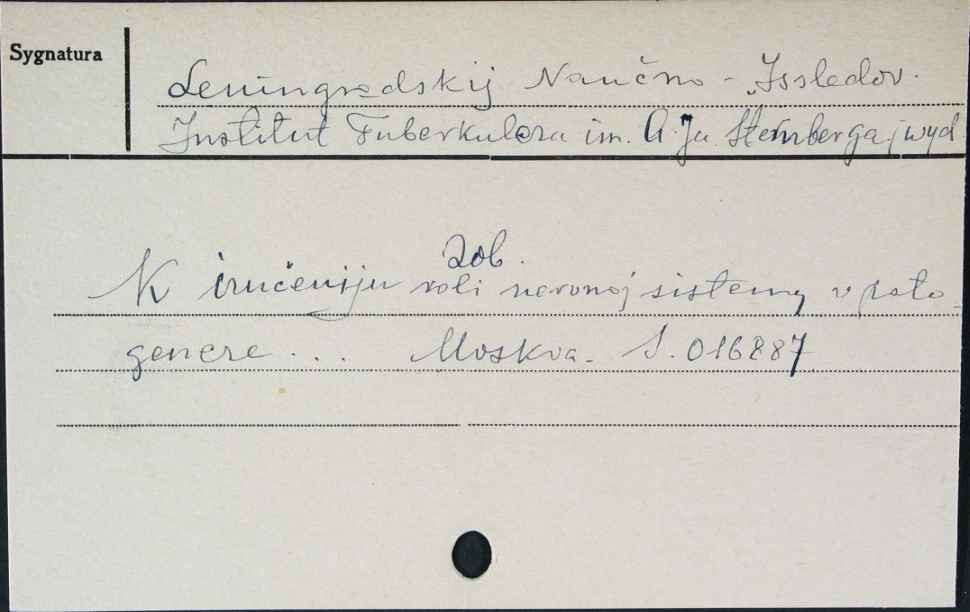 Sygnatura
Leningradskij Naučno-Issledov.
Institut Tuberkuleza im. A. Ju. Šternberga, wyd
Zob.
K izučeniju roli nervnoj sistemy v pato-
geneze ... Moskva. S. 016887